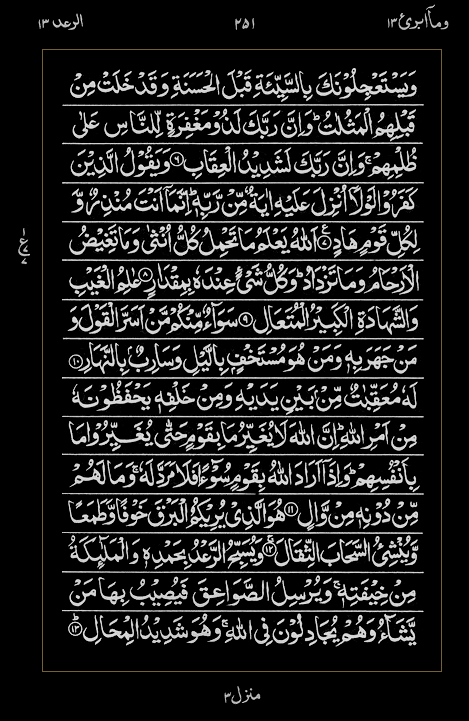 وماۤ ابرئ ١٣ ٢٥١ الرعد ١٣
وَيَسْتَعْجِلُوْنَكَ بِالسَّيِّئَةِ قَبْلَ الْحَسَنَةِ وَقَدْ خَلَتْ مِنْ
قَبْلِهِمُ الْمَثُلٰتُ ؕ وَاِنَّ رَبَّكَ لَذُوْ مَغْفِرَةٍ لِّلنَّاسِ عَلٰى
ظُلْمِهِمْ ۚ وَاِنَّ رَبَّكَ لَشَدِيْدُ الْعِقَابِ ﴿٦﴾ وَيَقُوْلُ الَّذِيْنَ
كَفَرُوْا لَوْلَاۤ اُنْزِلَ عَلَيْهِ اٰيَةٌ مِّنْ رَّبِّهٖ ؕ اِنَّمَاۤ اَنْتَ مُنْذِرٌ وَّ
لِكُلِّ قَوْمٍ هَادٍ ﴿٧﴾ اَللّٰهُ يَعْلَمُ مَا تَحْمِلُ كُلُّ اُنْثٰى وَمَا تَغِيْضُ
الْاَرْحَامُ وَمَا تَزْدَادُ ؕ وَكُلُّ شَىْءٍ عِنْدَهٗ بِمِقْدَارٍ ﴿٨﴾ عٰلِمُ الْغَيْبِ
وَالشَّهَادَةِ الْكَبِيْرُ الْمُتَعَالِ ﴿٩﴾ سَوَآءٌ مِّنْكُمْ مَّنْ اَسَرَّ الْقَوْلَ وَ
مَنْ جَهَرَ بِهٖ وَمَنْ هُوَ مُسْتَخْفٍۭ بِالَّيْلِ وَسَارِبٌۢ بِالنَّهَارِ ﴿١٠﴾
لَهٗ مُعَقِّبٰتٌ مِّنْۢ بَيْنِ يَدَيْهِ وَمِنْ خَلْفِهٖ يَحْفَظُوْنَهٗ
مِنْ اَمْرِ اللّٰهِ ؕ اِنَّ اللّٰهَ لَا يُغَيِّرُ مَا بِقَوْمٍ حَتّٰى يُغَيِّرُوْا مَا
بِاَنْفُسِهِمْ ؕ وَاِذَاۤ اَرَادَ اللّٰهُ بِقَوْمٍ سُوْٓءًا فَلَا مَرَدَّ لَهٗ ۚ وَمَا لَهُمْ
مِّنْ دُوْنِهٖ مِنْ وَّالٍ ﴿١١﴾ هُوَ الَّذِىْ يُرِيْكُمُ الْبَرْقَ خَوْفًا وَّطَمَعًا
وَّيُنْشِئُ السَّحَابَ الثِّقَالَ ﴿١٢﴾ وَيُسَبِّحُ الرَّعْدُ بِحَمْدِهٖ وَالْمَلٰٓئِكَةُ
مِنْ خِيْفَتِهٖ ۚ وَيُرْسِلُ الصَّوَاعِقَ فَيُصِيْبُ بِهَا مَنْ
يَّشَآءُ وَهُمْ يُجَادِلُوْنَ فِى اللّٰهِ ۚ وَهُوَ شَدِيْدُ الْمِحَالِ ﴿١٣﴾
منزل ٣